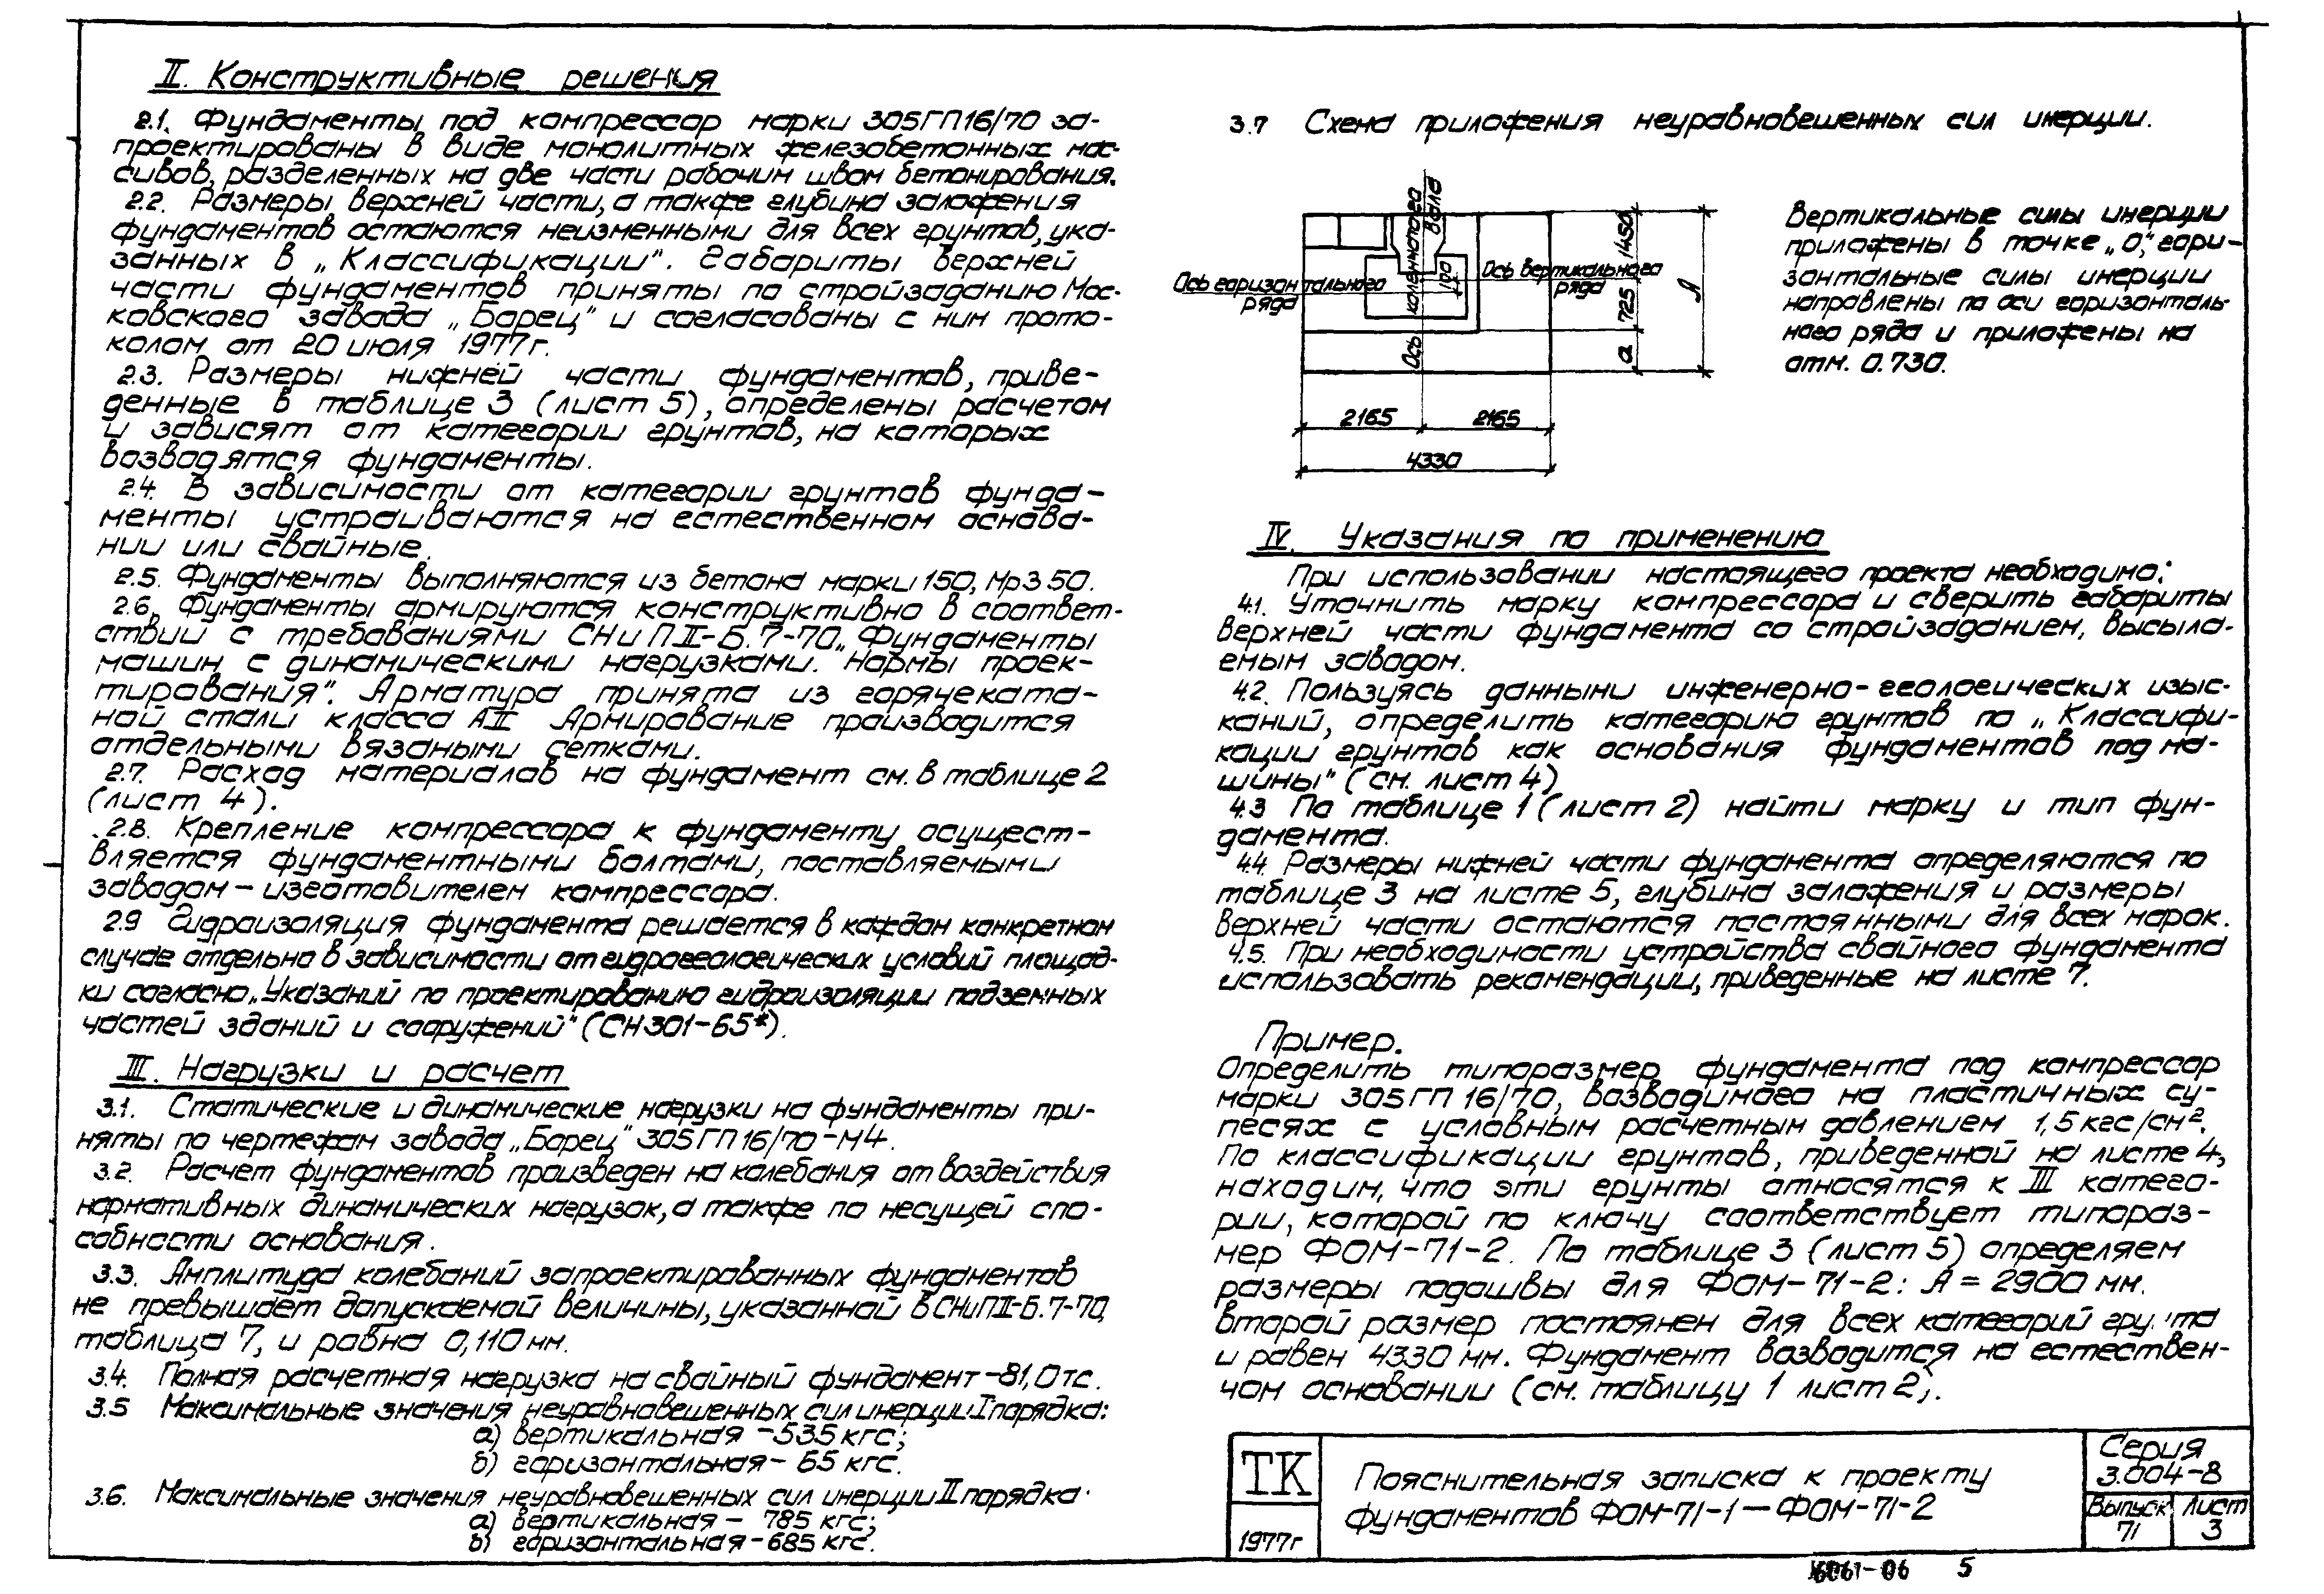 II. Конструктивные решения
2.1. Фундаменты под компрессор марки 305ГП16/70 за-
проектированы в виде монолитных железобетонных мас-
сивов, разделенных на две части рабочим швом бетонирования.
2.2. Размеры верхней части, а также глубина заложения
фундаментов остаются неизменными для всех грунтов, ука-
занных в „Классификации". Габариты верхней
части фундаментов приняты по стройзаданию Мос-
ковского завода „Борец" и согласованы с ним прото-
колом от 20 июля 1977г.
2.3. Размеры нижней части фундаментов, приве-
денные в таблице 3 (лист 5), определены расчетом
и зависят от категории грунтов, на которых
возводятся фундаменты.
2.4. В зависимости от категории грунтов фунда-
менты устраиваются на естественном основа-
нии или свайные.
2.5. Фундаменты выполняются из бетона марки 150, Мрз 50.
2.6. Фундаменты армируются конструктивно в соответ-
ствии с требованиями СНиП II-Б.7-70 „Фундаменты
машин с динамическими нагрузками. Нормы проек-
тирования". Арматура принята из горячеката-
ной стали класса АII Армирование производится
отдельными вязаными сетками.
2.7. Расход материалов на фундамент см. в таблице 2
(лист 4).
2.8. Крепление компрессора к фундаменту осущест-
вляется фундаментными болтами, поставляемыми
заводом – изготовителем компрессора.
2.9 Гидроизоляция фундамента решается в каждом конкретном
случае отдельно в зависимости от гидрогеологических условий площад-
ки согласно „Указаний по проектированию гидроизоляции подземных
частей зданий и сооружений" (СН301-65*).
III. Нагрузки и расчет
3.1. Статические и динамические нагрузки на фундаменты при-
няты по чертежам завода „Борец" 305ГП16/70-М4.
3.2. Расчет фундаментов произведен на колебания от воздействия
нормативных динамических нагрузок, а также по несущей спо-
собности основания.
3.3. Амплитуда колебаний запроектированных фундаментов
не превышает допускаемой величины, указанной в СНиПII-Б.7-70,
таблица 7, и равна 0,110 мм.
3.4. Полная расчетная нагрузка на свайный фундамент – 81,0 тс.
3.5 Максимальные значения неуравновешенных сил инерции I порядка:
а) вертикальная – 535 кгс;
б) горизонтальная – 65 кгс.
3.6. Максимальные значения неуравновешенных сил инерции II порядка:
а) вертикальная – 785 кгс;
б) горизонтальная – 685 кгс.
3.7 Схема приложения неуравновешенных сил инерции.
Ось коленчатого
вала
Ось горизонтального
ряда
Ось вертикального
ряда
100
1450
725
а
А
2165
2165
4330
Вертикальные силы инерции
приложены в точке „0", гори-
зонтальные силы инерции
направлены по оси горизонталь-
ного ряда и приложены на
отм. 0.730.
IV. Указания по применению
При использовании настоящего проекта необходимо:
4.1. Уточнить марку компрессора и сверить габариты
верхней части фундамента со стройзаданием, высыла-
емым заводом.
4.2. Пользуясь данными инженерно-геологических изыс-
каний, определить категорию грунтов по „Классифи-
кации грунтов как основания фундаментов под ма-
шины" (см. лист 4)
4.3 По таблице 1 (лист 2) найти марку и тип фун-
дамента.
4.4. Размеры нижней части фундамента определяются по
таблице 3 на листе 5, глубина заложения и размеры
верхней части остаются постоянными для всех марок.
4.5. При необходимости устройства свайного фундамента
использовать рекомендации, приведенные на листе 7.
Пример.
Определить типоразмер фундамента под компрессор
марки 305ГП 16/70, возводимого на пластичных су-
песях с условным расчетным давлением 1,5 кгс/см².
По классификации грунтов, приведенной на листе 4,
находим, что эти грунты относятся к III катего-
рии, которой по ключу соответствует типораз-
мер ФОМ-71-2. По таблице 3 (лист 5) определяем
размеры подошвы для ФОМ-71-2: А = 2900 мм.
второй размер постоянен для всех категорий грунта
и равен 4330 мм. Фундамент возводится на естествен-
ном основании (см. таблицу 1 лист 2).
ТК
1977г
Пояснительная записка к проекту
фундаментов ФОМ-71-1 – ФОМ-71-2
Серия
3.004-8
Выпуск
71
Лист
3
16061-06 5